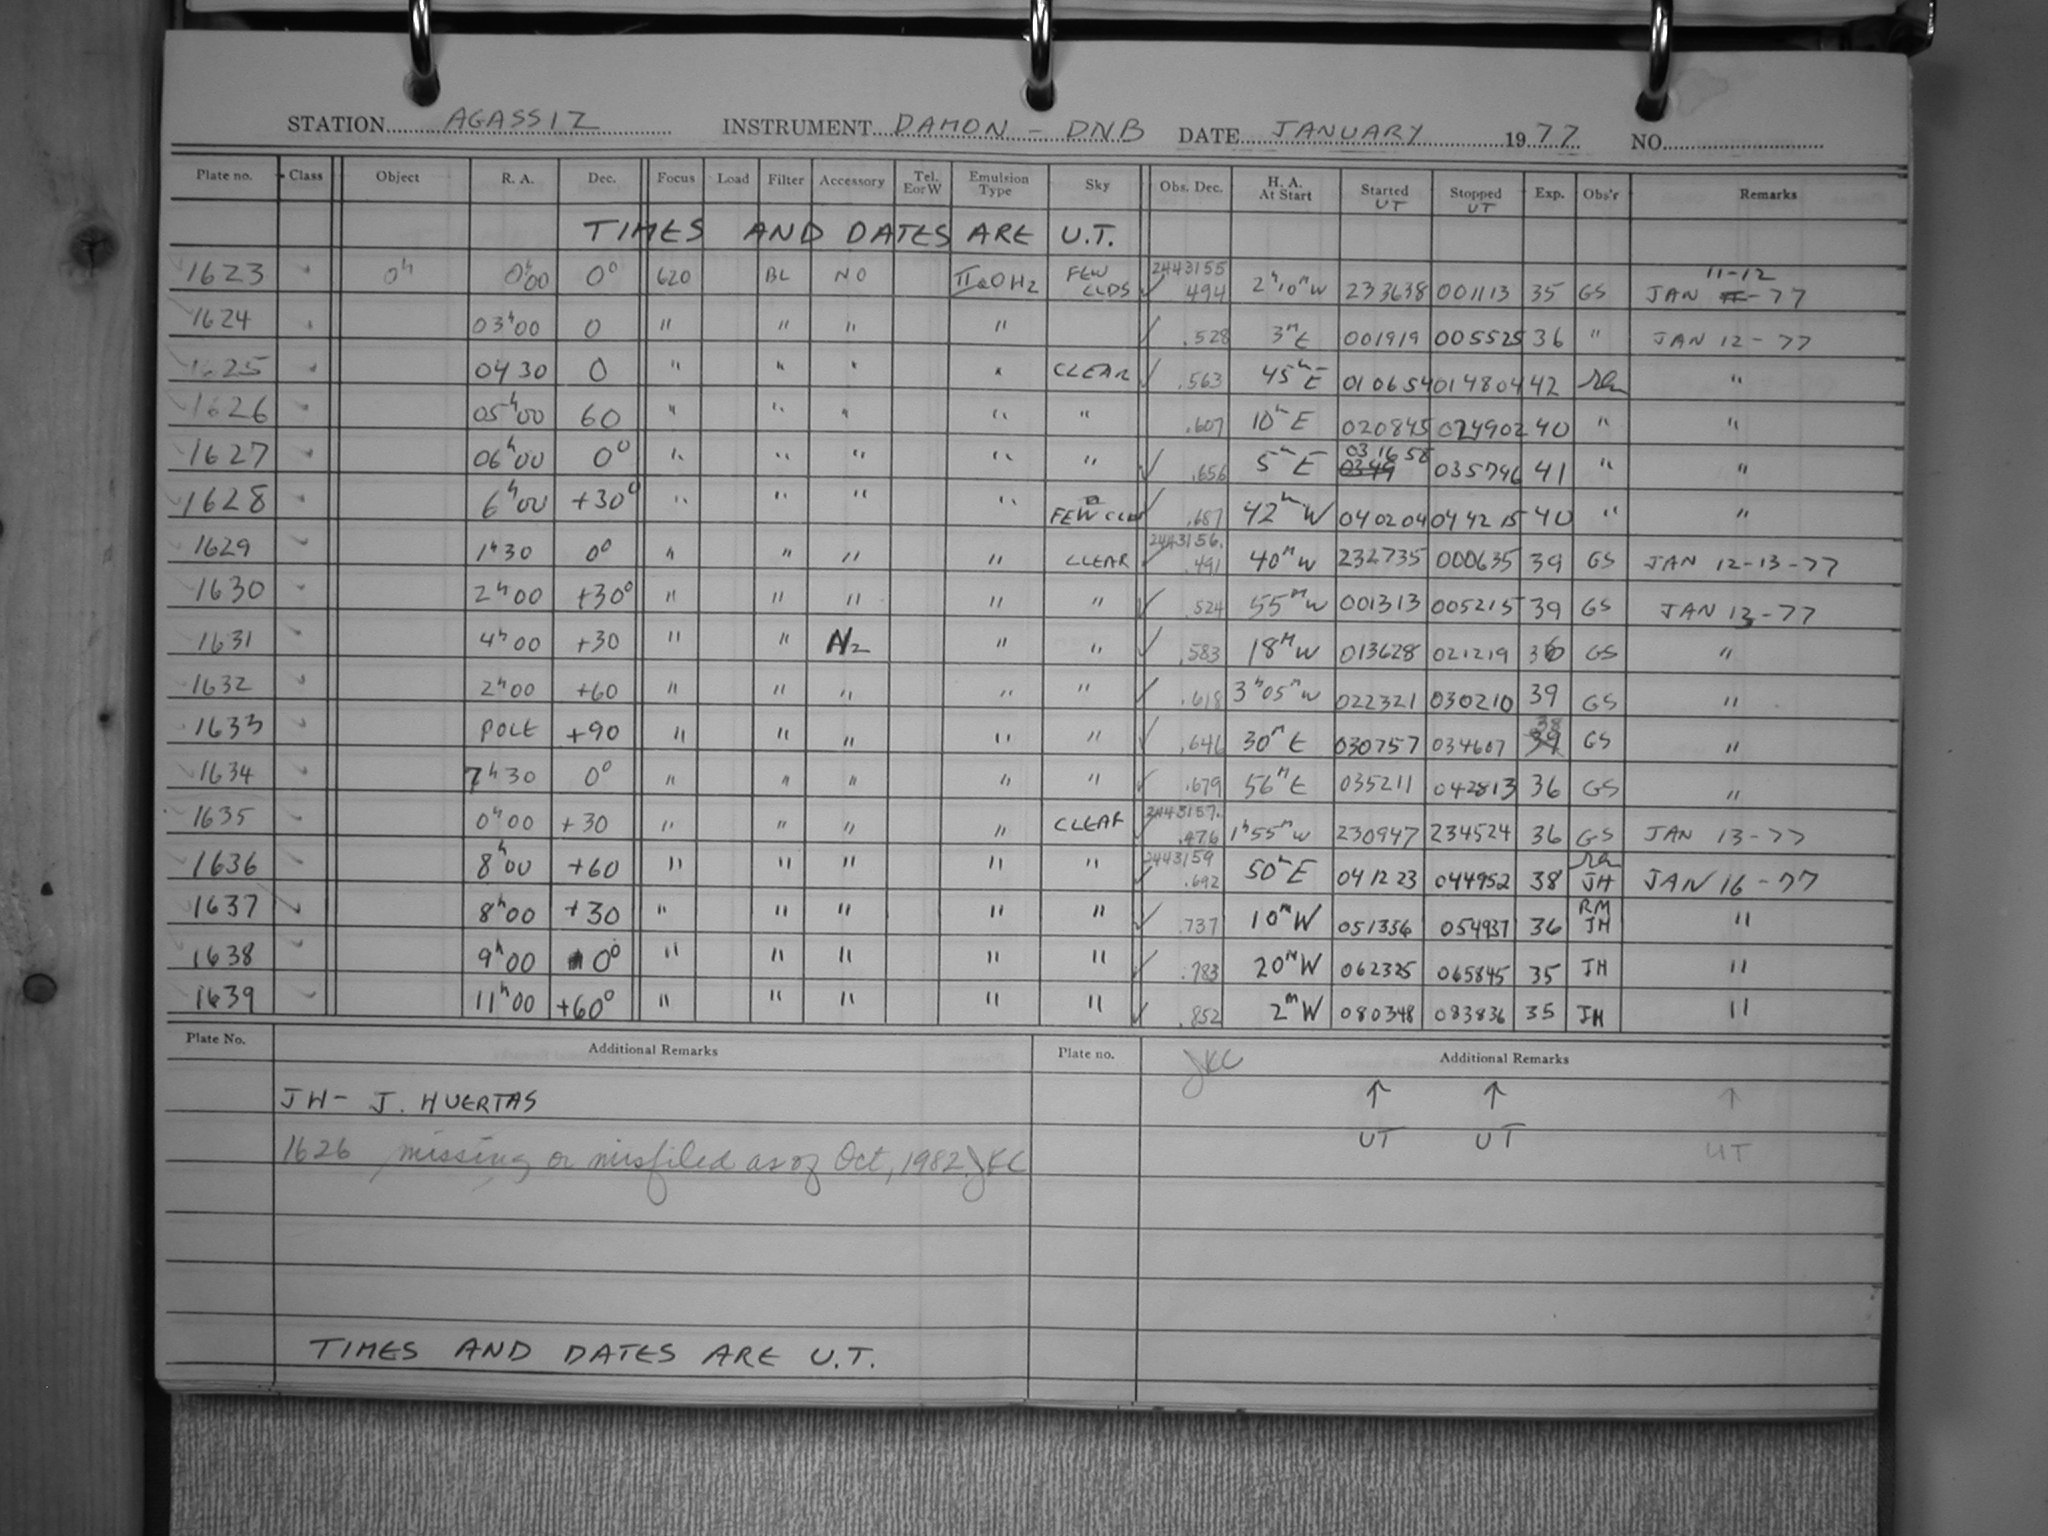 STATION AGASSIZ INSTRUMENT DAMON - DNB DATE JANUARY 1977 NO.
Plate no. Class Object R. A. Dec. Focus Load Filter Accessory Tel. E or W Emulsion Type Sky Obs. Dec. H. A. At Start Started UT Stopped UT Exp. Obs'r Remarks
TIMES AND DATES ARE U.T.
1623 0h 0h00 0° 620 BL NO IIaO H2 FEW CLDS 2443155 .494 2h10m W 233638 001113 35 GS JAN 11-12 -77
1624 03h00 0 " " " " .528 3m E 001919 005525 36 " JAN 12-77
1625 04 30 0 " " " " CLEAR .563 45m E 010654 014804 42 "
1626 05h00 60 " " " " " .607 10m E 020845 024902 40 " "
1627 06h00 0° " " " " " .656 5m E 0349 031658 035746 41 " "
1628 6h00 +30° " " " " FEW CLD .687 42m W 040204 044215 40 " "
1629 1h30 0° " " " " CLEAR 2443156. .491 40m W 232735 000635 39 GS JAN 12-13-77
1630 2h00 +30° " " " " " .524 55m W 001313 005215 39 GS JAN 13-77
1631 4h00 +30 " " N2 " " .583 18m W 013628 021219 36 GS "
1632 2h00 +60 " " " " " .618 3h05m W 022321 030210 39 GS "
1633 POLE +90 " " " " " .646 30m E 030757 034607 39 38 GS "
1634 7h30 0° " " " " " .679 56m E 035211 042813 36 GS "
1635 0h00 +30 " " " " CLEAR 2443157. .476 1h55m W 230947 234524 36 GS JAN 13-77
1636 8h00 +60 " " " " " 2443159 .692 50m E 041223 044952 38 JH JAN 16-77
1637 8h00 +30 " " " " " .737 10m W 051336 054937 36 RM JH "
1638 9h00 0° " " " " " .783 20m W 062325 065845 35 JH "
1639 11h00 +60° " " " " " .852 2m W 080348 083836 35 JH "
Plate No. Additional Remarks Plate no. Additional Remarks
JKC
JH - J. HUERTAS
↑ ↑ ↑
UT UT UT
1626 missing or misfiled as of Oct, 1982 JKC
TIMES AND DATES ARE U.T.